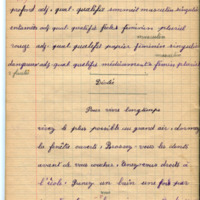 profond adj. qual. qualifie sommeil masculin singulier
entiers adj. qual. qualifie
masculin
rouge adj. qual. qualifie papier féminin singulier
dangereux adj. qual. qualifie médicaments féminin pluriel
Dictée
Pour vivre longtemps
vivez le plus possible au grand air. dormez
la fenêtre ouverte. Brossez-vous les dents
avant de vous coucher. Tenez-vous droits à
l'école. Prenez un bain une fois par